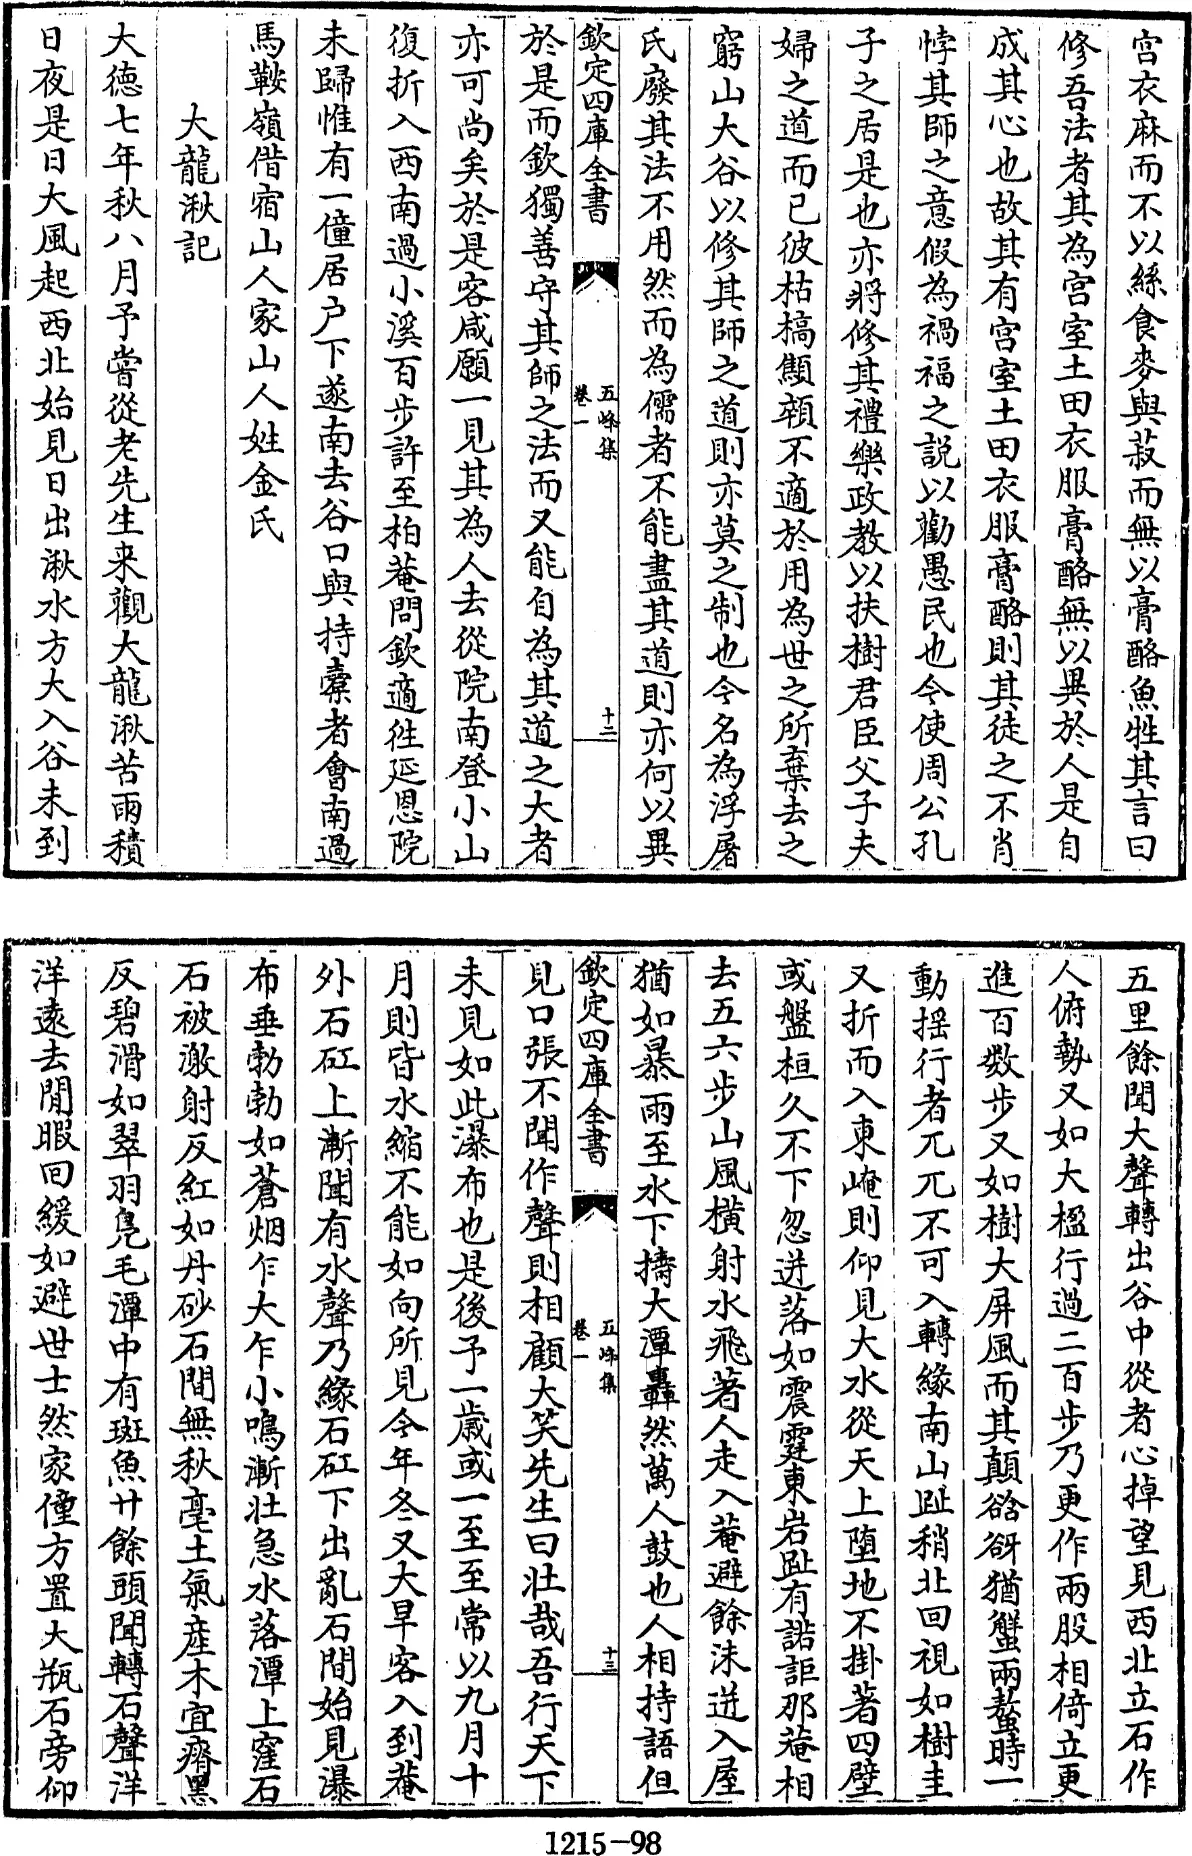 宫衣麻而不以絲食麥與菽而無以膏酪魚牲其言曰
修吾法者其為宫室土田衣服膏酪無以異於人是自
成其心也故其有宫室土田衣服膏酪則其徒之不肖
悖其師之意假為禍福之説以勸愚民也今使周公孔
子之居是也亦將修其禮樂政教以扶樹君臣父子夫
婦之道而已彼枯槁顦顇不適於用為世之所棄去之
窮山大谷以修其師之道則亦莫之制也今名為浮屠
氏廢其法不用然而為儒者不能盡其道則亦何以異
欽定四庫全書
五峰集
卷一
十二
於是而欽獨善守其師之法而又能自為其道之大者
亦可尚矣於是客咸願一見其為人去從院南登小山
復折入西南過小溪百步許至柏菴問欽適徃延恩院
未歸惟有一僮居户下遂南去谷口與持橐者會南過
馬鞍嶺借宿山人家山人姓金氏
大龍湫記
大德七年秋八月予嘗從老先生来觀大龍湫苦雨積
日夜是日大風起西北始見日出湫水方大入谷未到
五里餘聞大聲轉出谷中從者心掉望見西北立石作
人俯勢又如大楹行過二百步乃更作兩股相倚立更
進百數步又如樹大屏風而其顛谽谺猶蟹兩螯時一
動揺行者兀兀不可入轉緣南山趾稍北回視如樹圭
又折而入東崦則仰見大水從天上墮地不掛著四壁
或盤桓久不下忽迸落如震霆東岩趾有諾詎那菴相
去五六步山風橫射水飛著人走入菴避餘沫迸入屋
猶如暴雨至水下擣大潭轟然萬人鼓也人相持語但
欽定四庫全書
五峰集
卷一
十三
見口張不聞作聲則相顧大笑先生曰壯哉吾行天下
未見如此瀑布也是後予一歳或一至至常以九月十
月則皆水縮不能如向所見今年冬又大旱客入到菴
外石矼上漸聞有水聲乃緣石矼下出亂石間始見瀑
布垂勃勃如蒼烟乍大乍小鳴漸壯急水落潭上窪石
石被激射反紅如丹砂石間無秋毫土氣産木宜瘠黑
反碧滑如翠羽鳬毛潭中有斑魚廿餘頭聞轉石聲洋
洋遠去閒暇回緩如避世士然家僮方置大瓶石旁仰
1215-98